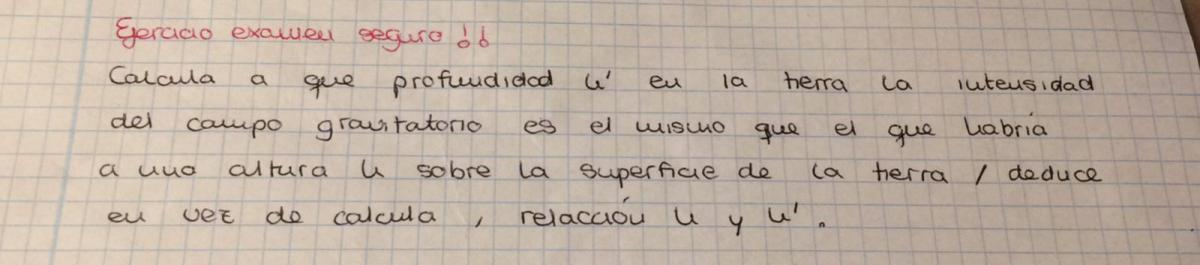 Ejercicio examen seguro !!
Calcula a que profundidad h' en la tierra la intensidad
del campo gravitatorio es el mismo que el que habría
a una altura h sobre la superficie de la tierra / deduce
en vez de calcula, relacción h y h'.